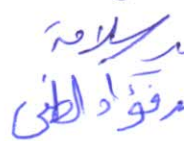 د سلامة
د فؤاد لطفى